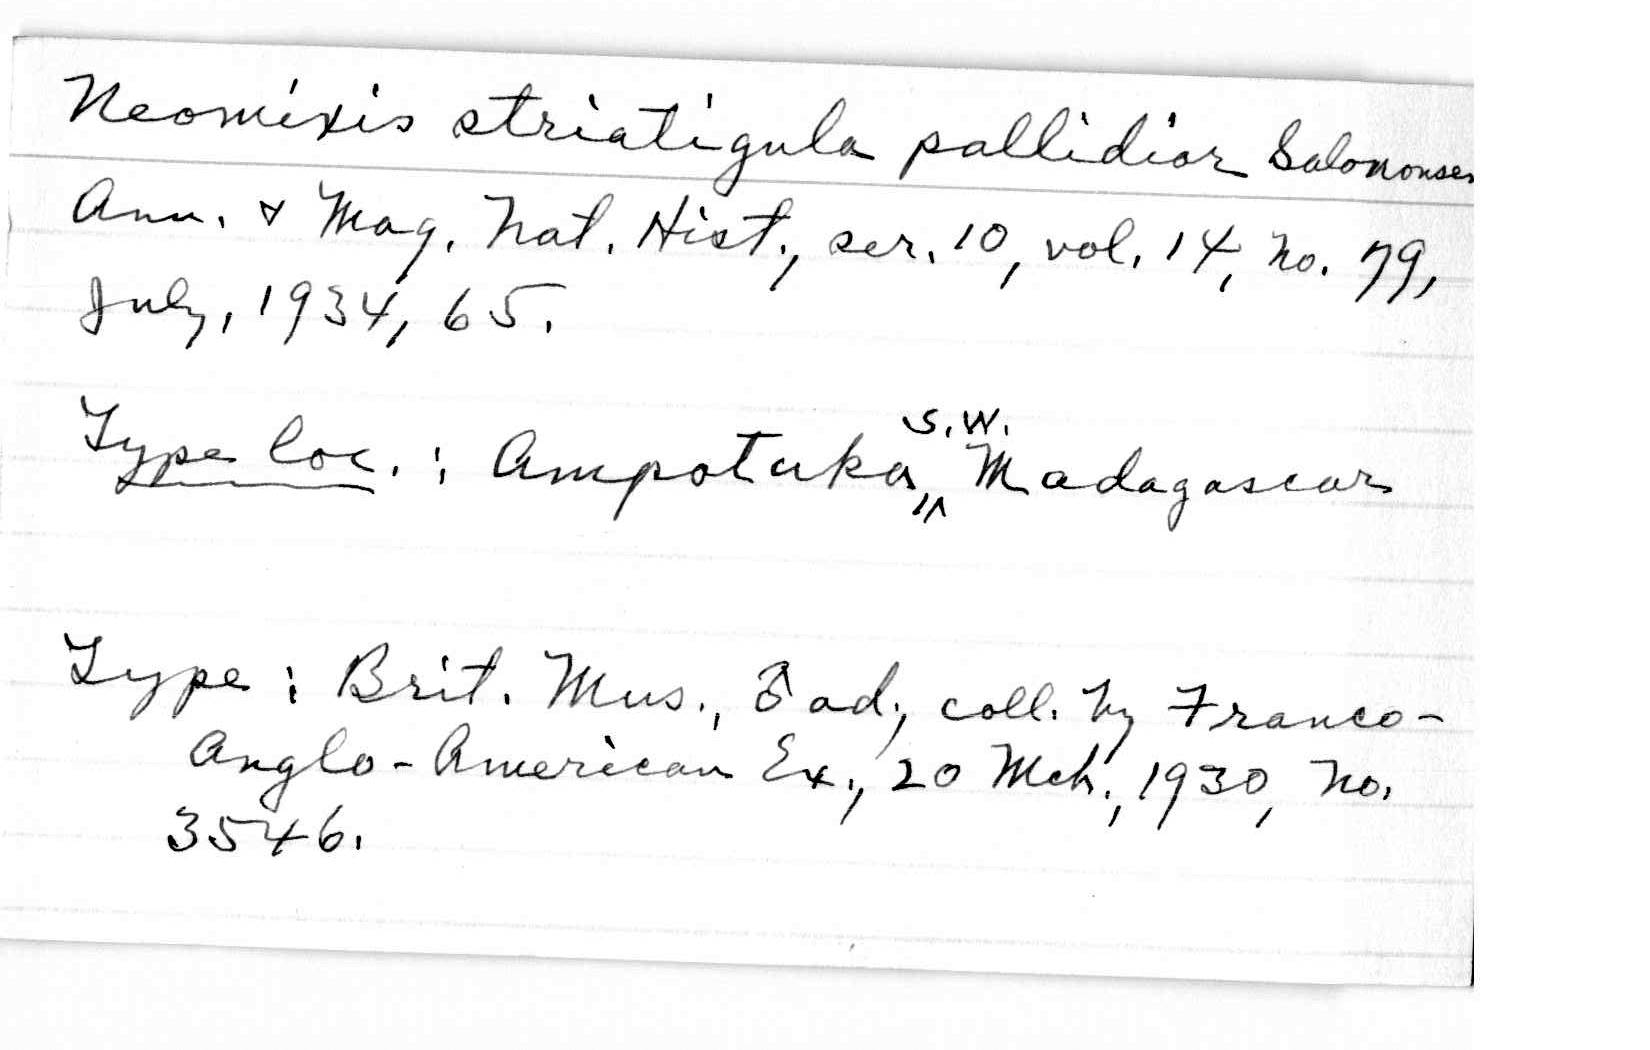 Neomixis striatigula pallidior Salomonsen
Ann. & Mag. Nat. Hist., ser. 10, vol. 14, no. 79,
July, 1934, 65.
Type loc.: Ampotaka, S.W. Madagascar
Type: Brit. Mus., ♂ ad., coll. by Franco-
Anglo-American Ex., 20 Mch., 1930, no.
3546.